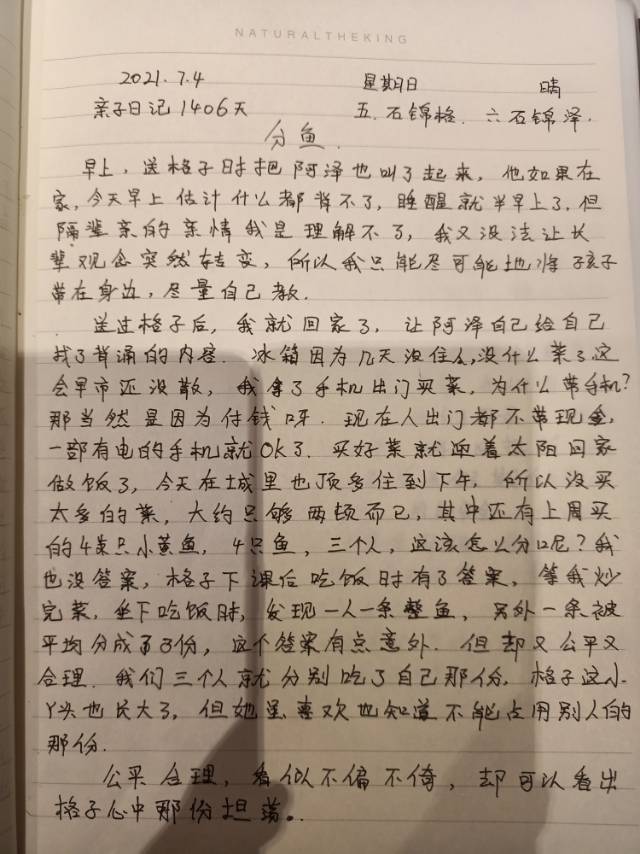 NATURALTHEKING
2021.7.4 星期日 晴
亲子日记1406天 五.石锦格.六石锦泽.
分鱼.
早上,送格子时把阿泽也叫了起来,他如果在
家,今天早上估计什么都背不了,睡醒就半早上了.但
隔辈亲的亲情我是理解不了,我又没法让长
辈观念突然转变,所以我只能尽可能地将孩子
带在身边,尽量自己教.
送过格子后,我就回家了,让阿泽自己给自己
找了背诵的内容.冰箱因为几天没住人,没什么菜了这
会早市还没散,我拿了手机出门买菜,为什么带手机?
那当然是因为付钱呀.现在人出门都不带现金,
一部有电的手机就OK了.买好菜就迎着太阳回家
做饭了,今天在城里也顶多住到下午,所以没买
太多的菜,大约只够两顿而已,其中还有上周买
的4条只小黄鱼,4只鱼,三个人,这该怎么分呢?我
也没答案,格子下课后吃饭时有了答案,等我炒
完菜,坐下吃饭时,发现一人一条整鱼,另外一条被
平均分成了3份,这个答案有点意外.但却又公平又
合理.我们三个人就分别吃了自己那份,格子这小
丫头也长大了,但她虽喜欢也知道不能占用别人的
那份.
公平合理,看似不偏不倚,却可以看出
格子心中那份坦荡。